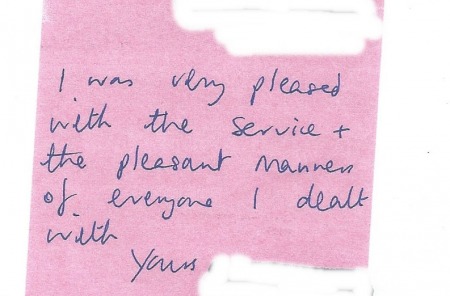 I was very pleased
with the service +
the pleasant manner
of everyone I dealt
with
Yours